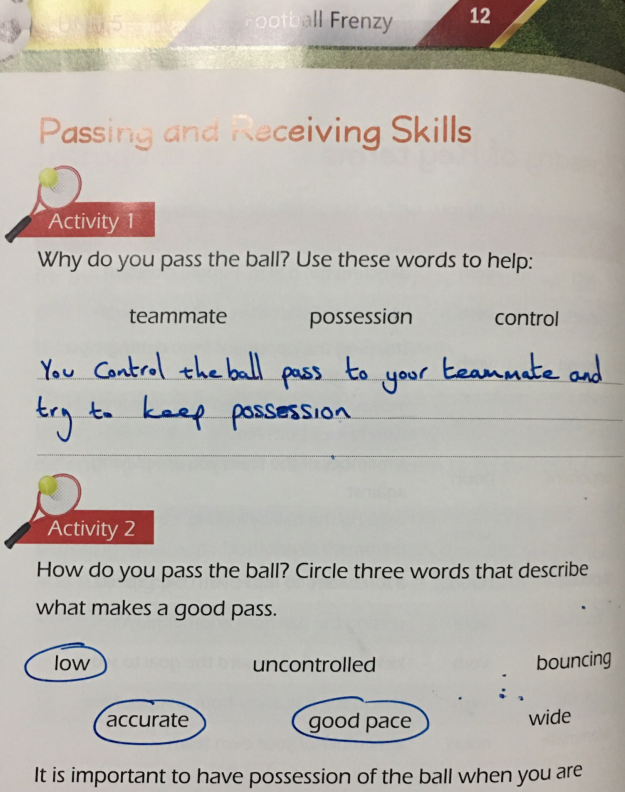 Football Frenzy
12
Passing and Receiving Skills
Activity 1
Why do you pass the ball? Use these words to help:
teammate possession control
You control the ball pass to your teammate and
try to keep possession
Activity 2
How do you pass the ball? Circle three words that describe
what makes a good pass.
low uncontrolled bouncing
accurate good pace wide
It is important to have possession of the ball when you are